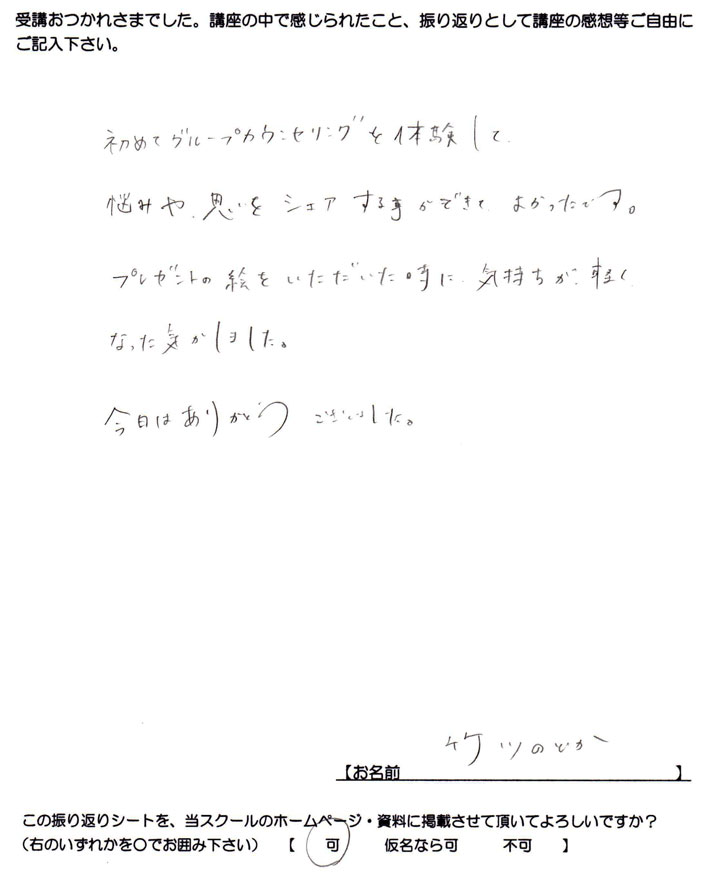 受講おつかれさまでした。講座の中で感じられたこと、振り返りとして講座の感想等ご自由に
ご記入下さい。
初めてグループカウンセリングを体験して、
悩みや、思いを シェア する事ができて よかったです。
プレゼントの 絵を いただいた時に、気持ちが、軽く
なった気がしました。
今日はありがとう ございました。
竹ツのどか
【お名前 】
この振り返りシートを、当スクールのホームページ・資料に掲載させて頂いてよろしいですか？
（右のいずれかを〇でお囲み下さい） 【 可 仮名なら可 不可 】